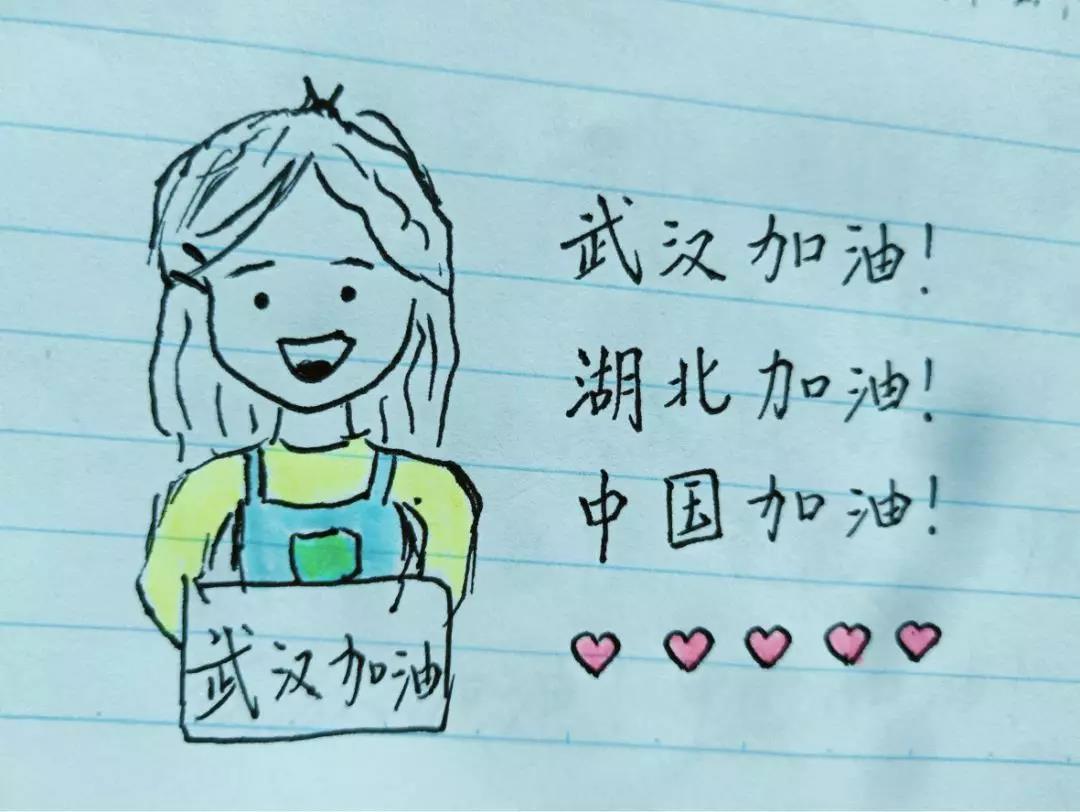 武汉加油!
湖北加油!
中国加油!
武汉加油